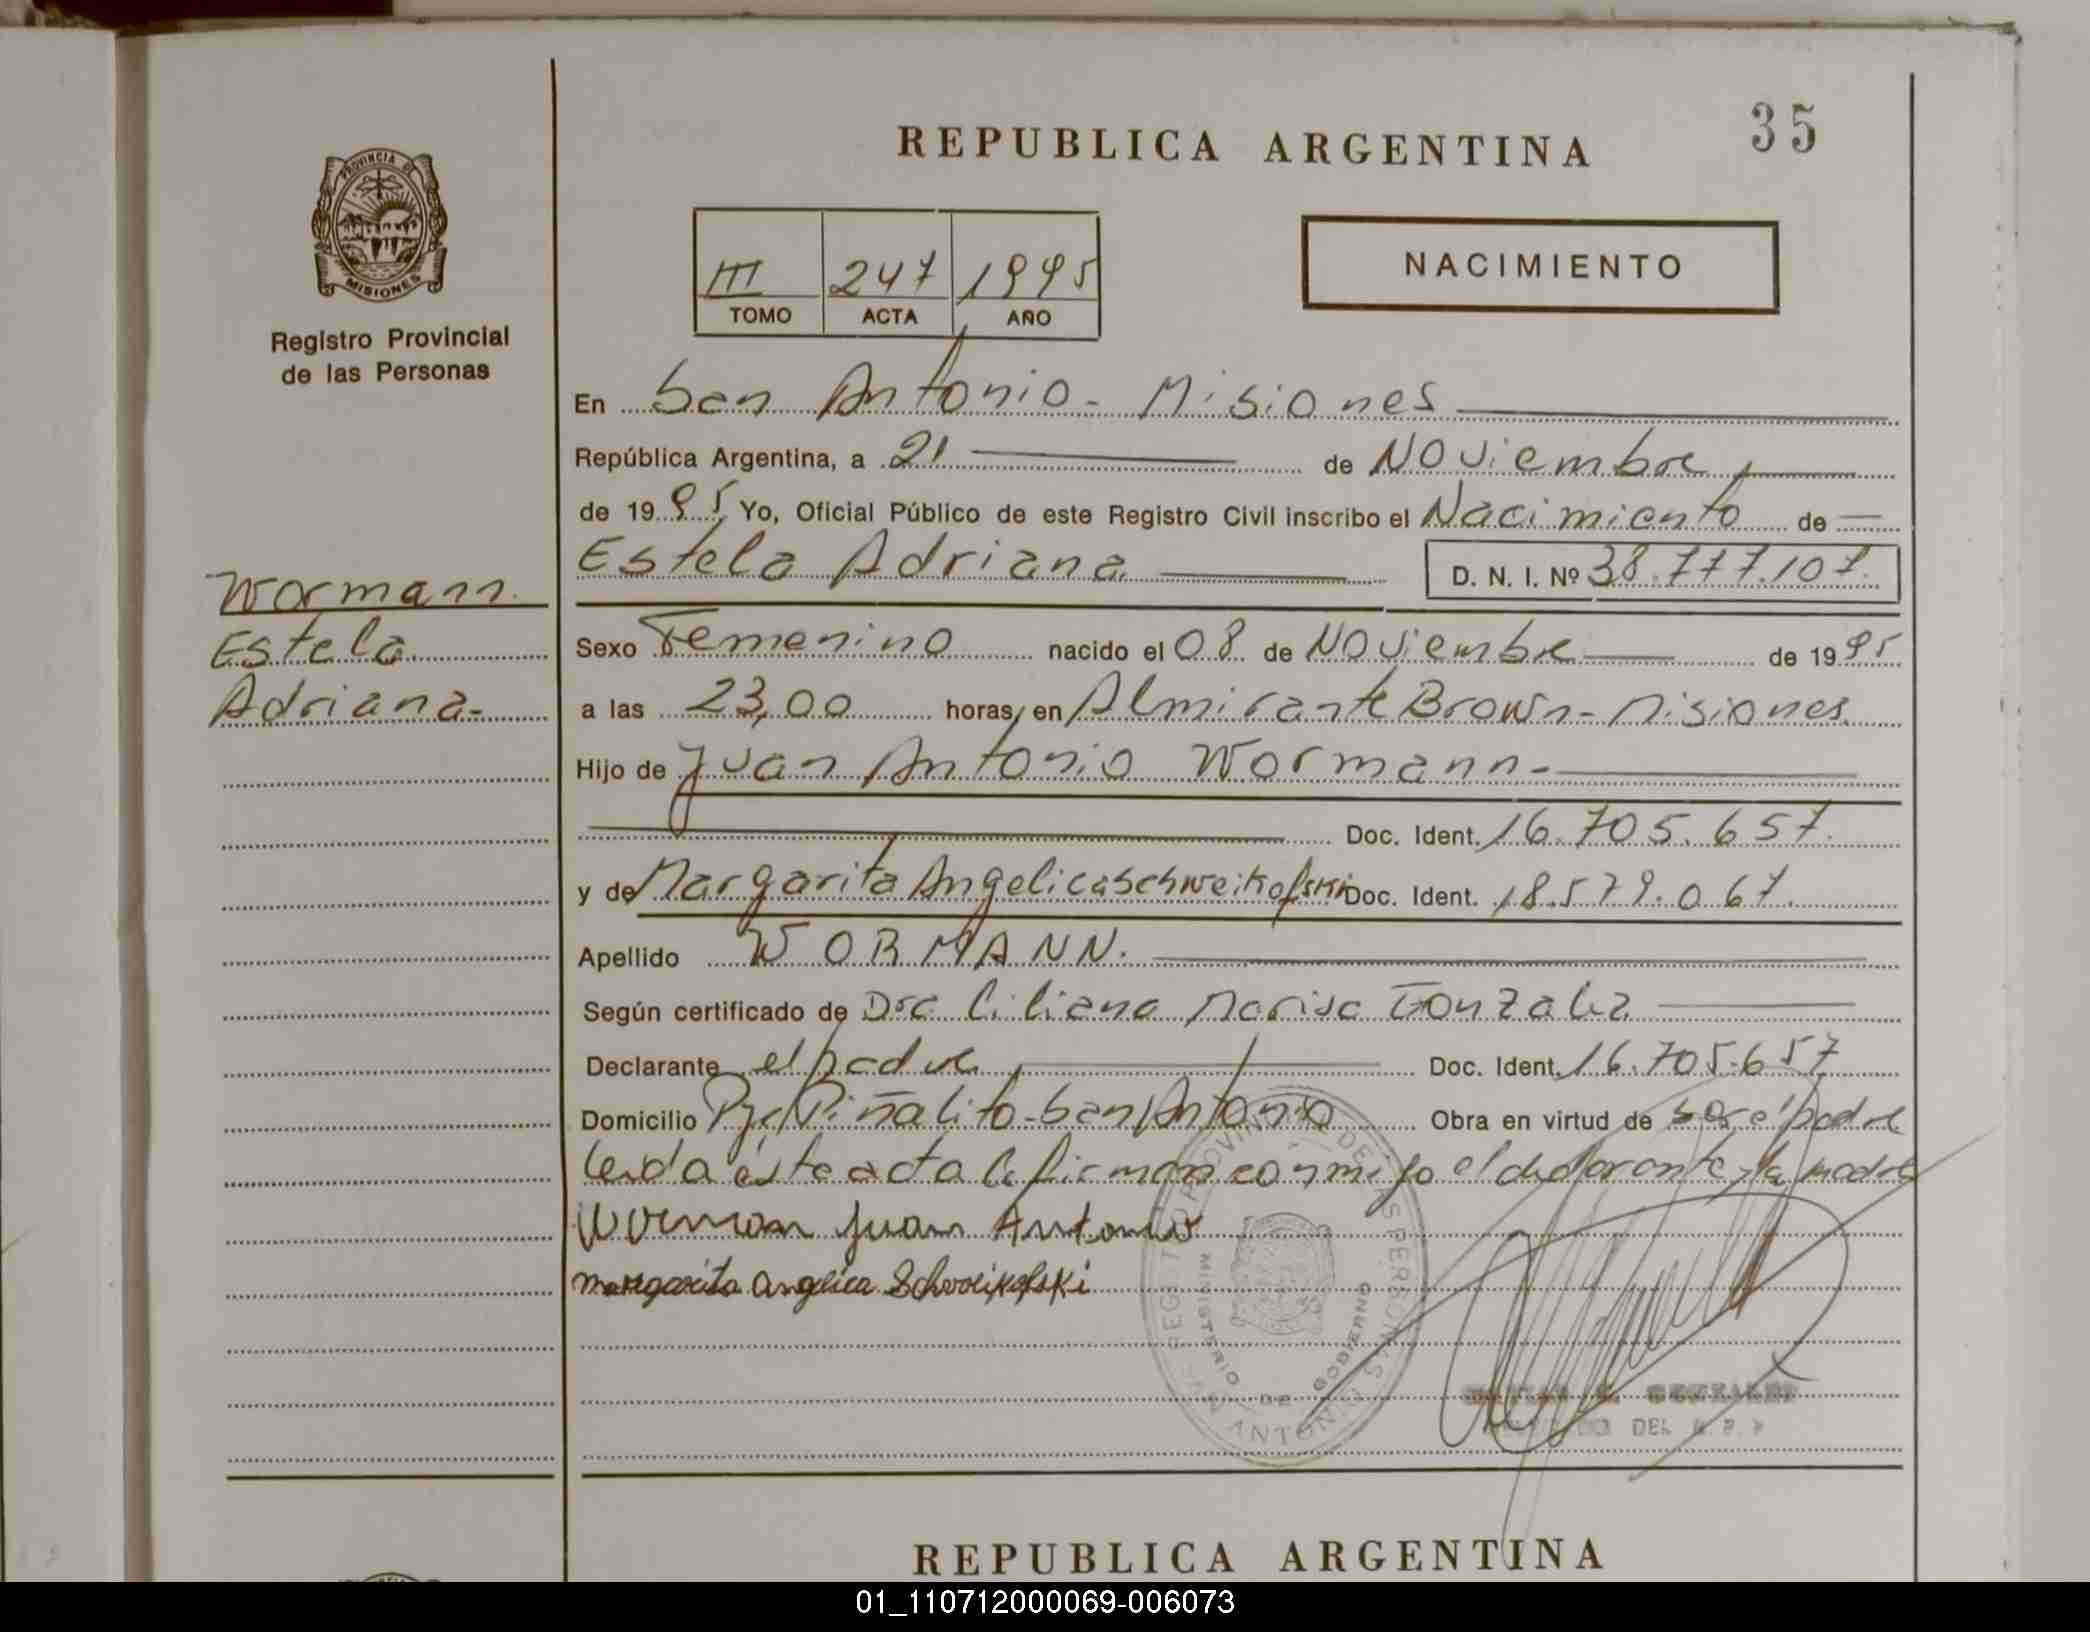 35
REPUBLICA ARGENTINA
PROVINCIA DE
MISIONES
Registro Provincial
de las Personas
III 247 1995
TOMO ACTA AÑO
NACIMIENTO
En San Antonio - Misiones
República Argentina, a 21 de Noviembre
de 1995 Yo, Oficial Público de este Registro Civil inscribo el Nacimiento de
Estela Adriana D. N. I. Nº 38.777.107.
Wormann.
Estela
Adriana-
Sexo Femenino nacido el 08 de Noviembre de 1995
a las 23,00 horas, en Almirante Brown - Misiones.
Hijo de Juan Antonio Wormann-
Doc. Ident. 16.705.657.
y de Margarita Angelica Schweikofski Doc. Ident. 18.579.067.
Apellido WORMANN.
Según certificado de Dra Liliana Marisa Gonzalez
Declarante el padre Doc. Ident. 16.705.657
Domicilio Pje Piñalito - San Antonio Obra en virtud de ser el padre
Leida éste acta la firman conmigo el declarante y la madre
Worman Juan Antonio
Margarita Angelica Schweikofski
REGISTRO PROVINCIAL DE LAS PERSONAS
MINISTERIO DE GOBIERNO
SAN ANTONIO
GONZALEZ
DEL R. P. P
REPUBLICA ARGENTINA
01_110712000069-006073